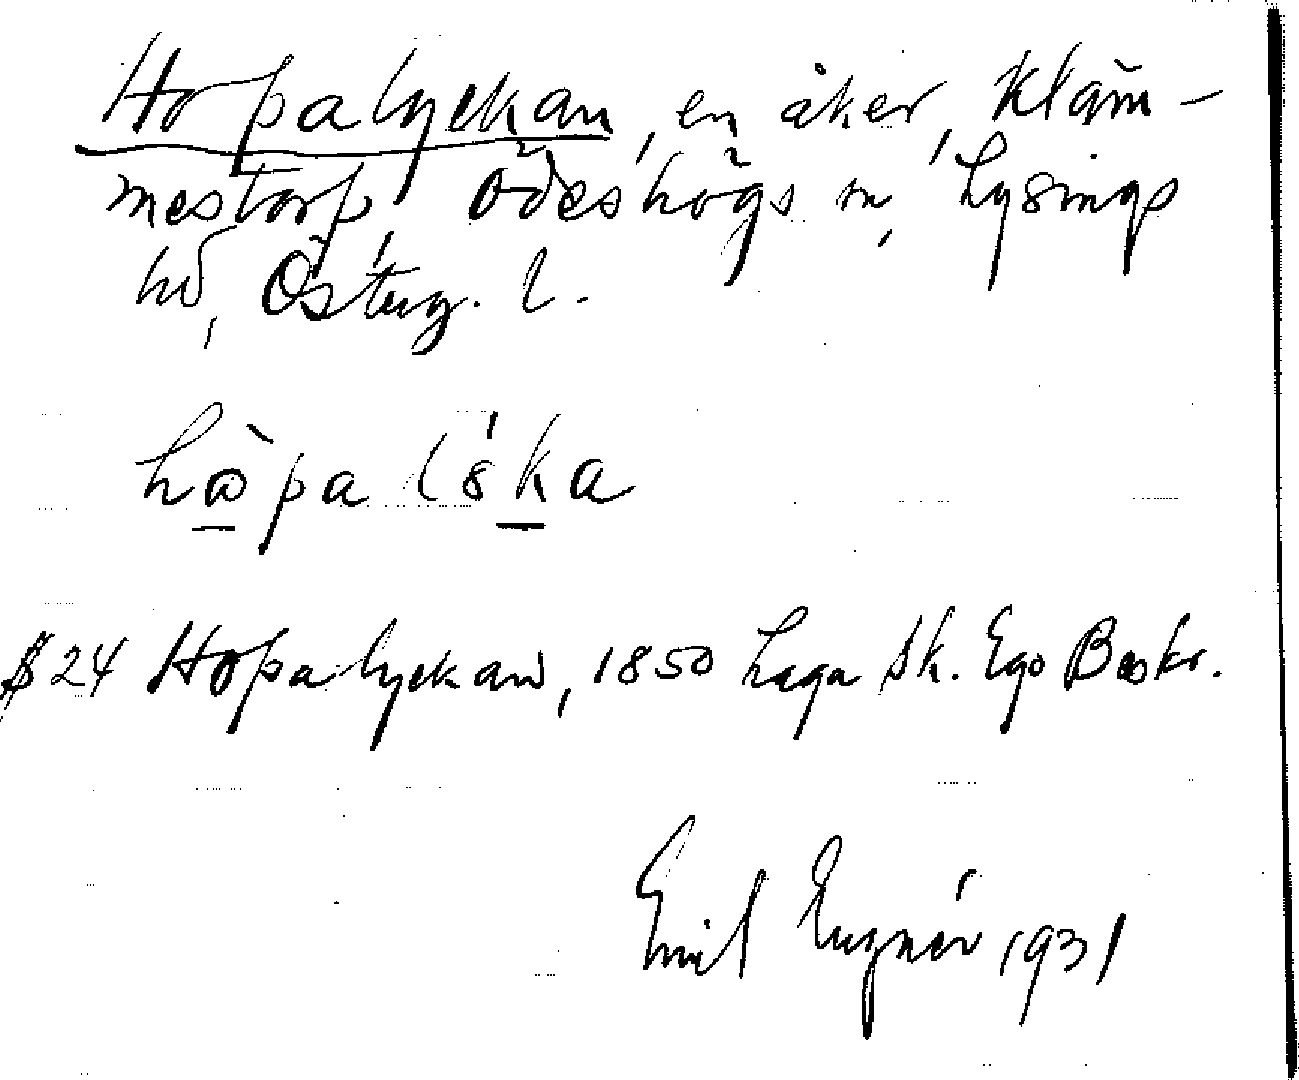 Hopalyckan, en åker, Kläm-
mestorp, Ödeshögs sn, Lysings
hd, Österg. l.
§ 24 Hopalyckan, 1850 Laga Sk. Ego Beskr.
Emil 1931